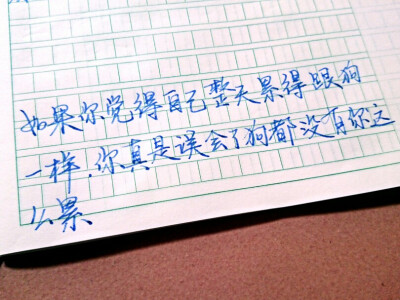 如果你觉得自己整天累得跟狗
一样,你真是误会了狗都没有你这
么累